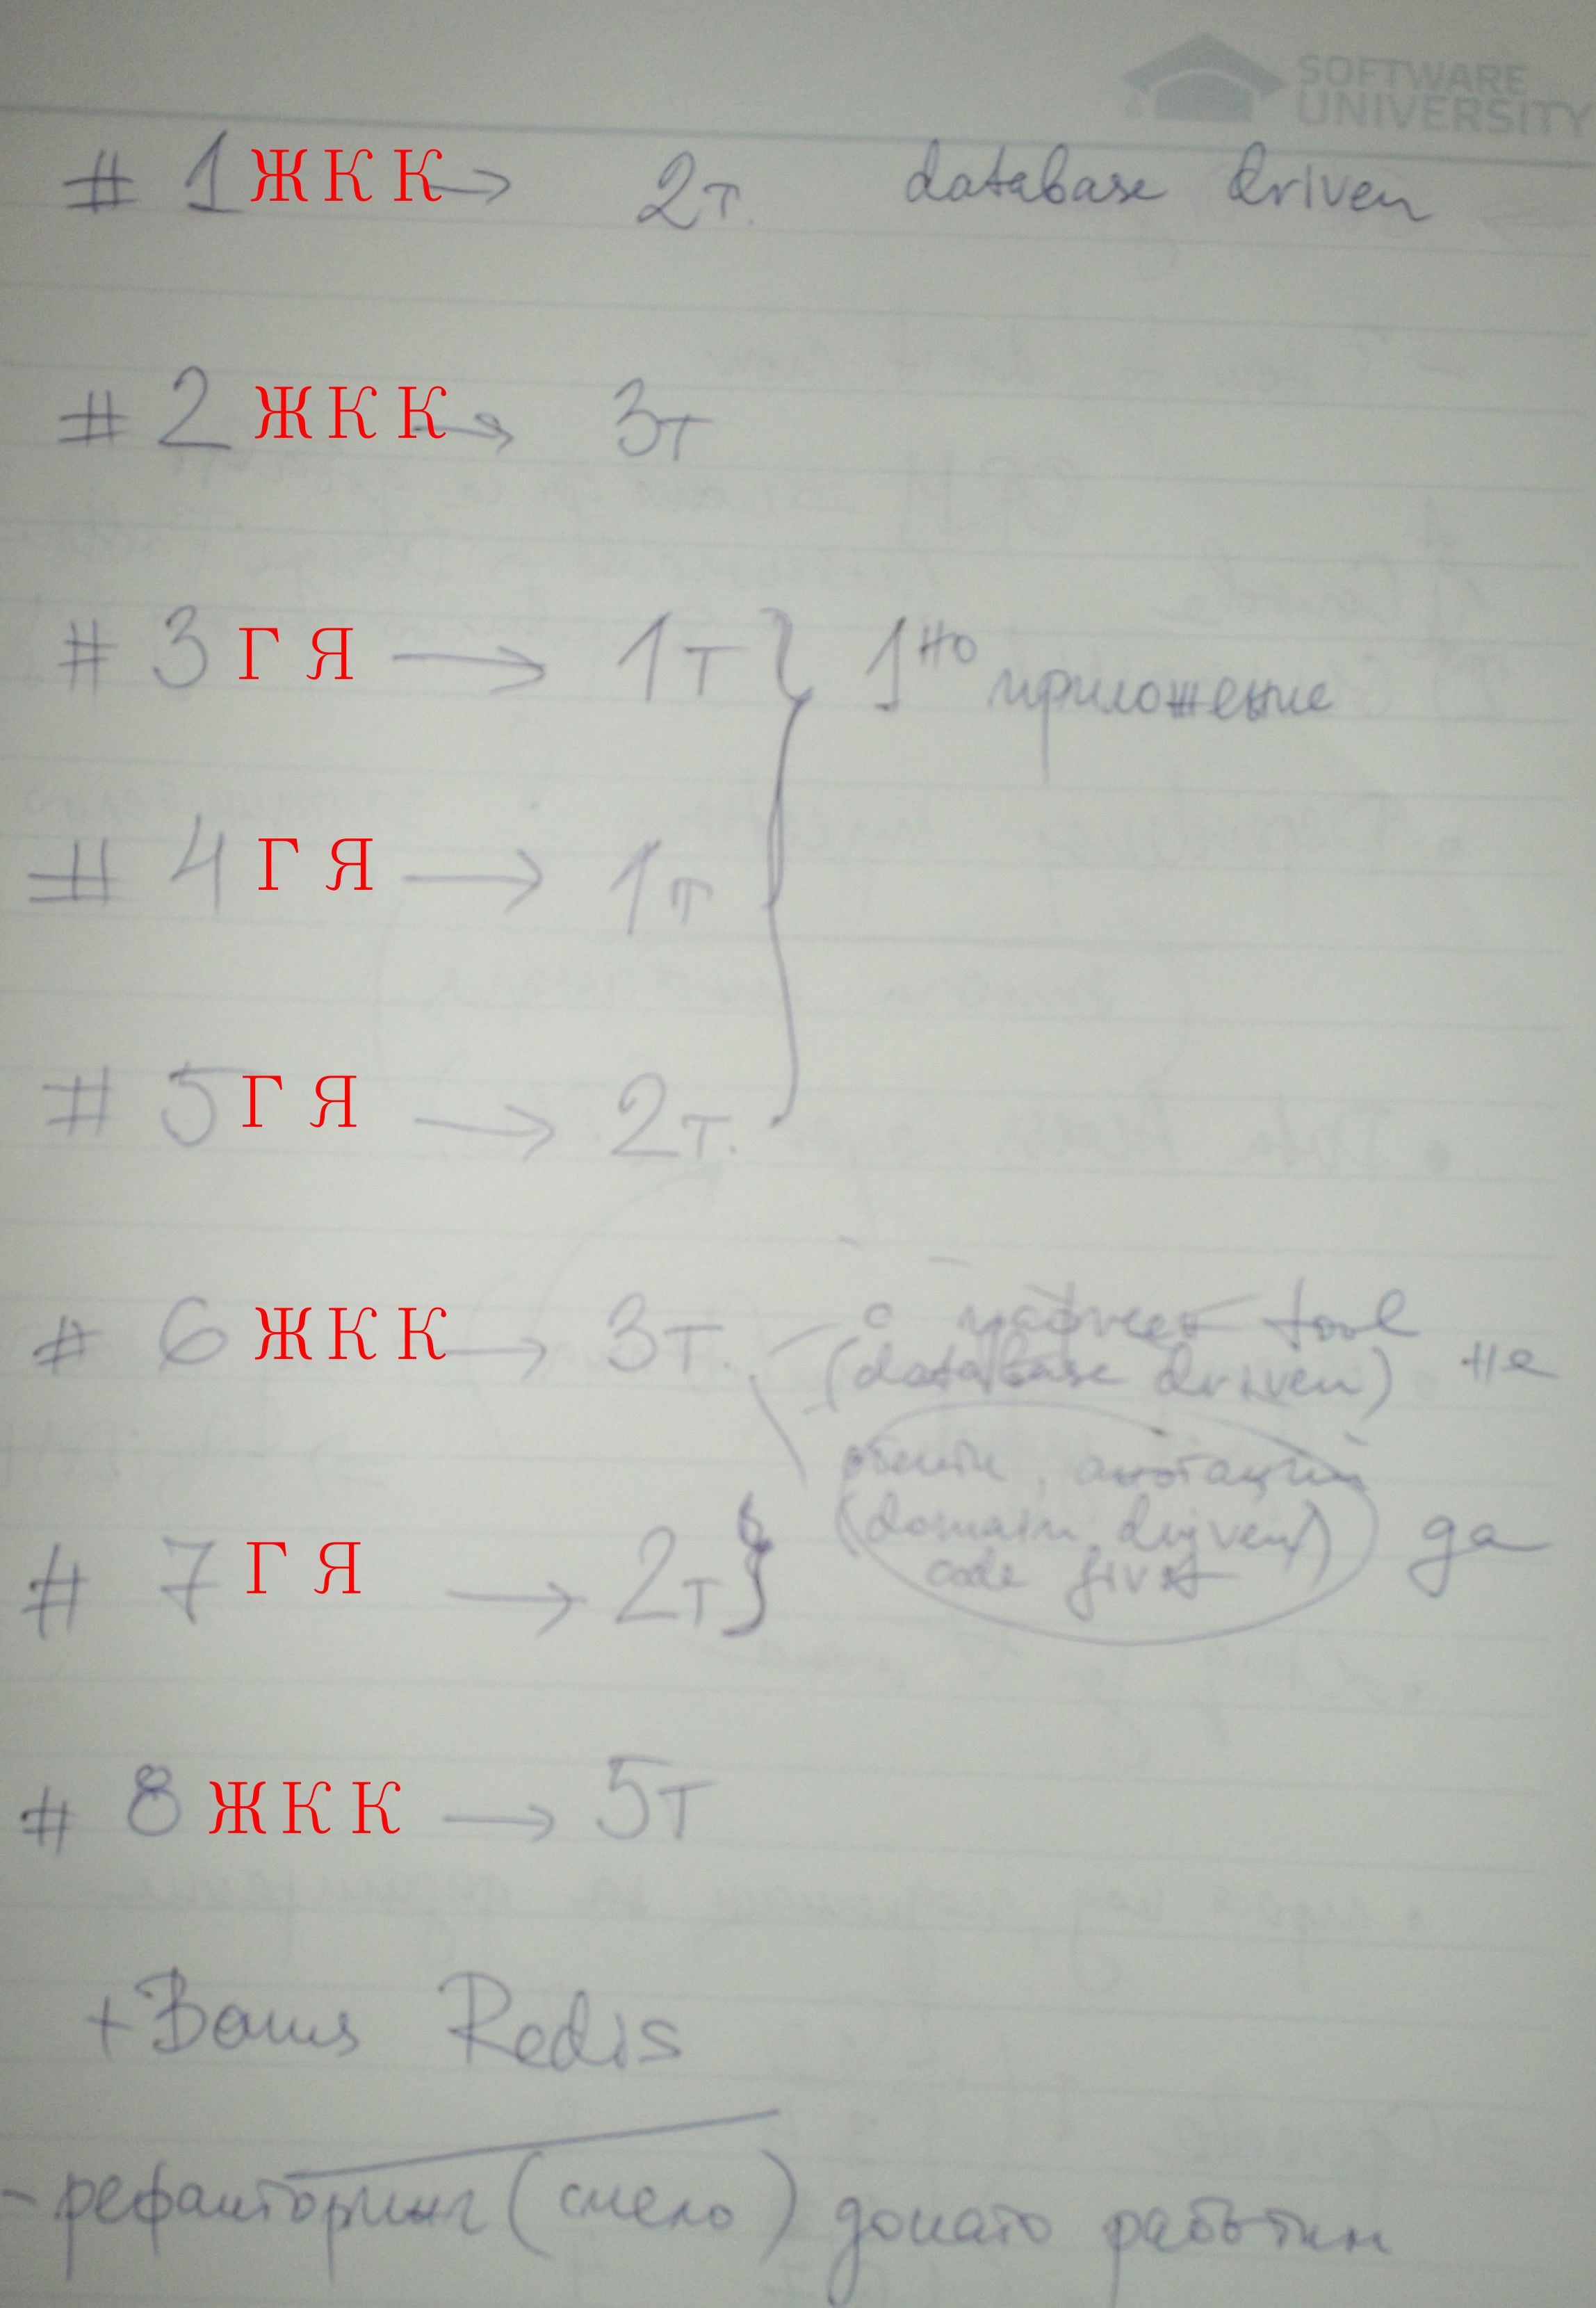 SOFTWARE
UNIVERSITY
# 1 Ж К К → 2т. database driven
# 2 Ж К К → 3т
# 3 Г Я → 1т } 1но приложение
# 4 Г Я → 1т
# 5 Г Я → 2т.
# 6 Ж К К → 3т. с tool
(database driven) не
анотации
(domain driven) да
code first
# 7 Г Я → 2т }
# 8 Ж К К → 5т
+ Redis
- рефакторинг (смело) докато работим